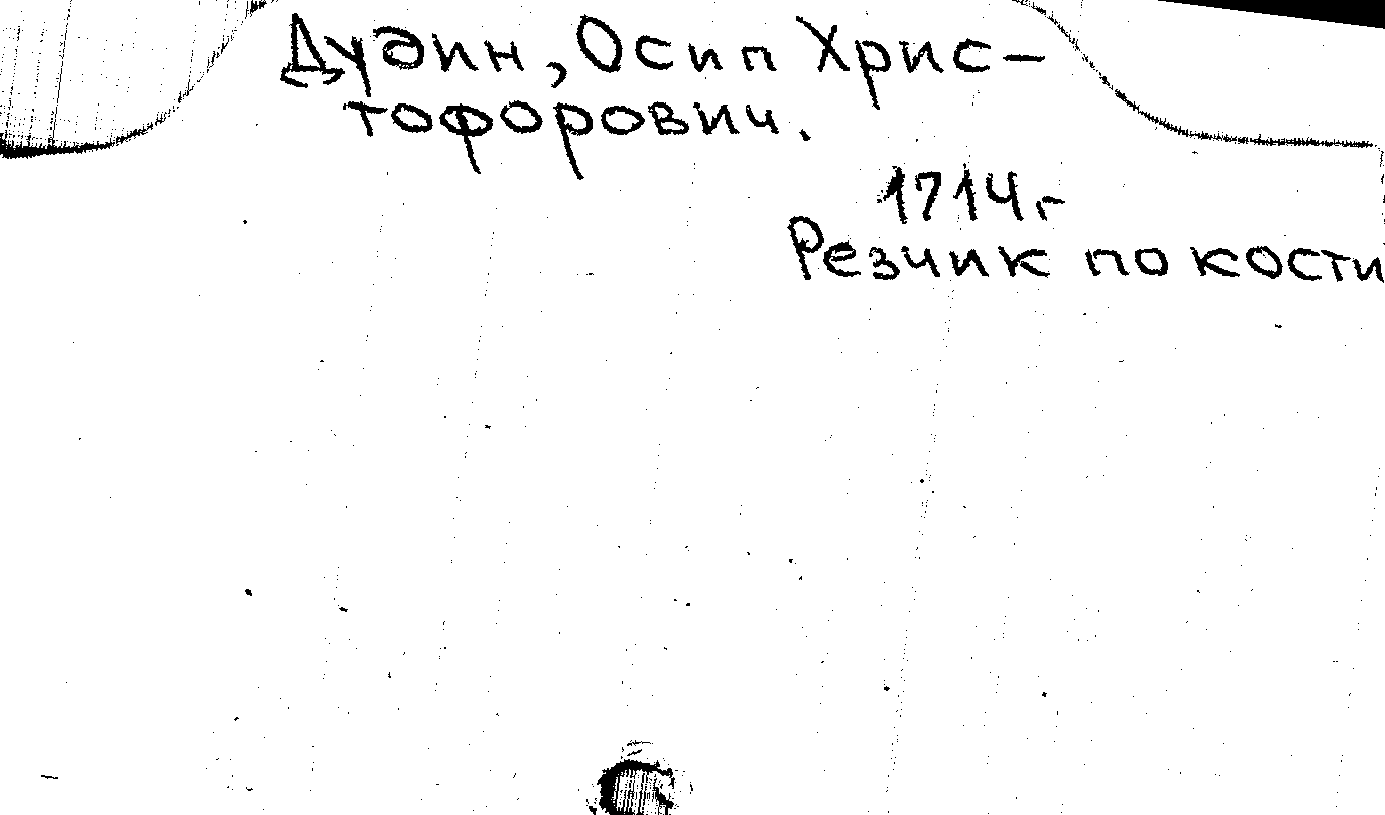 Дудин, Осип Хрис-
тофорович.
1714г
Резчик по кости